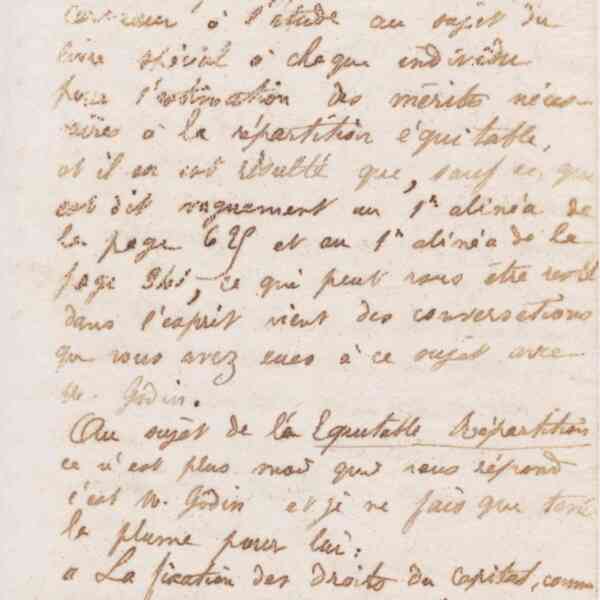 à l'étude au sujet du
livre spécial à chaque individu
pour l'estimation des mérites néces-
saires à la répartition équitable,
et il en est résulté que, sauf ce qui
est dit vaguement au 1er alinéa de
la page 625 et au 1er alinéa de la
page ce qui peut vous être resté
dans l'esprit vient des conversations
que vous avez eues à ce sujet avec
M. Godin.
Au sujet de la Equitable Répartition
ce n'est plus moi qui vous répond
c'est M. Godin et je ne fais que tenir
la plume pour lui:
" La fixation des droits du Capital, comme